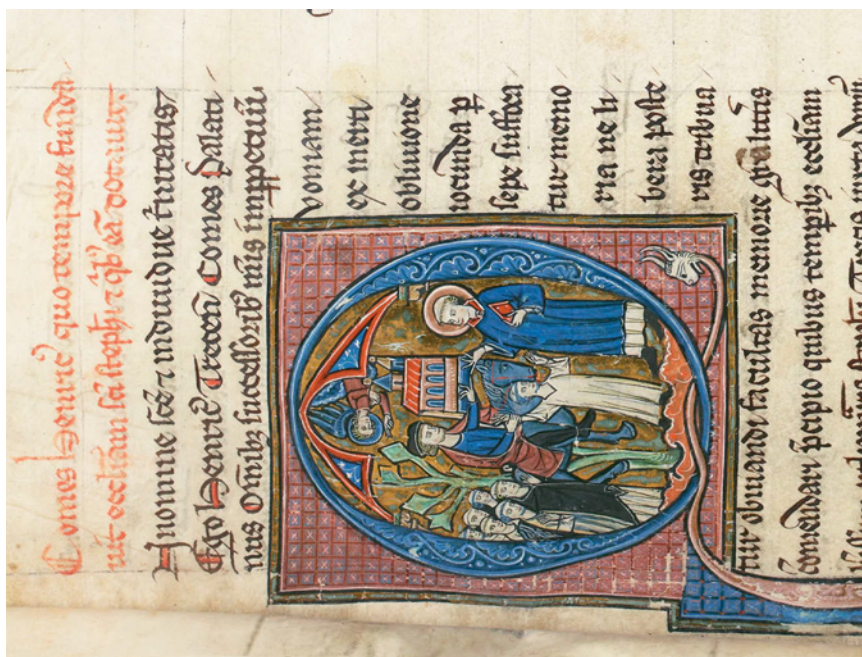 Comes henric quo tempore funda
uit eccliam sci stephi ⁊ qb eā dotauit.
In nomine sce ⁊ indiuidue t̃nitatis
Ego henric̃ Trecen̄ Comes Palati
nus Omĩbꝫ successorib̃ meis imppetuũ.
Quoniam
ex inerti
obliuione
iocunda ꝑ
sepe suffoca
tur memo
ria ne li
bera poste
ris tribua
tur obuiandi facultas memorie
Comendari p̃cipio quibus tempibꝫ eccliam